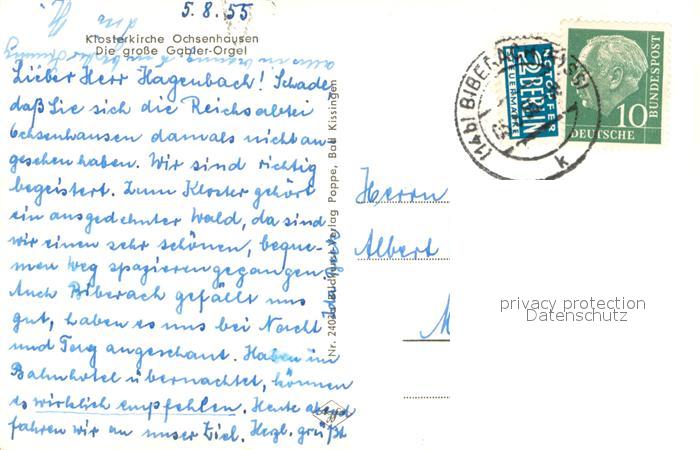 5. 8. 55
Klosterkirche Ochsenhausen
Die große Gabler-Orgel
Lieber Herr Hagenbach! Schade
daß Sie sich die Reichsabtei
Ochsenhausen damals nicht an
gesehen haben. Wir sind richtig
begeistert. Zum Kloster gehört
ein ausgedehnter Wald, da sind
wir einen sehr schönen, beque-
men Weg spazierengegangen.
Auch Biberach gefällt uns
gut, haben es uns bei Nacht
und Tag angeschaut. Haben im
Bahnhotel übernachtet, können
es wirklich empfehlen. Heute abend
fahren wir an unser Ziel. Herzl. grüßt
Bildkunst-Verlag Poppe, Bad Kissingen
Nr. 240
Herrn
Albert
M
(14b) BIBERA
k
NOTOPFER
2 BERLIN
STEUERMARKE
10
DEUTSCHE
BUNDESPOST
privacy protection
Datenschutz